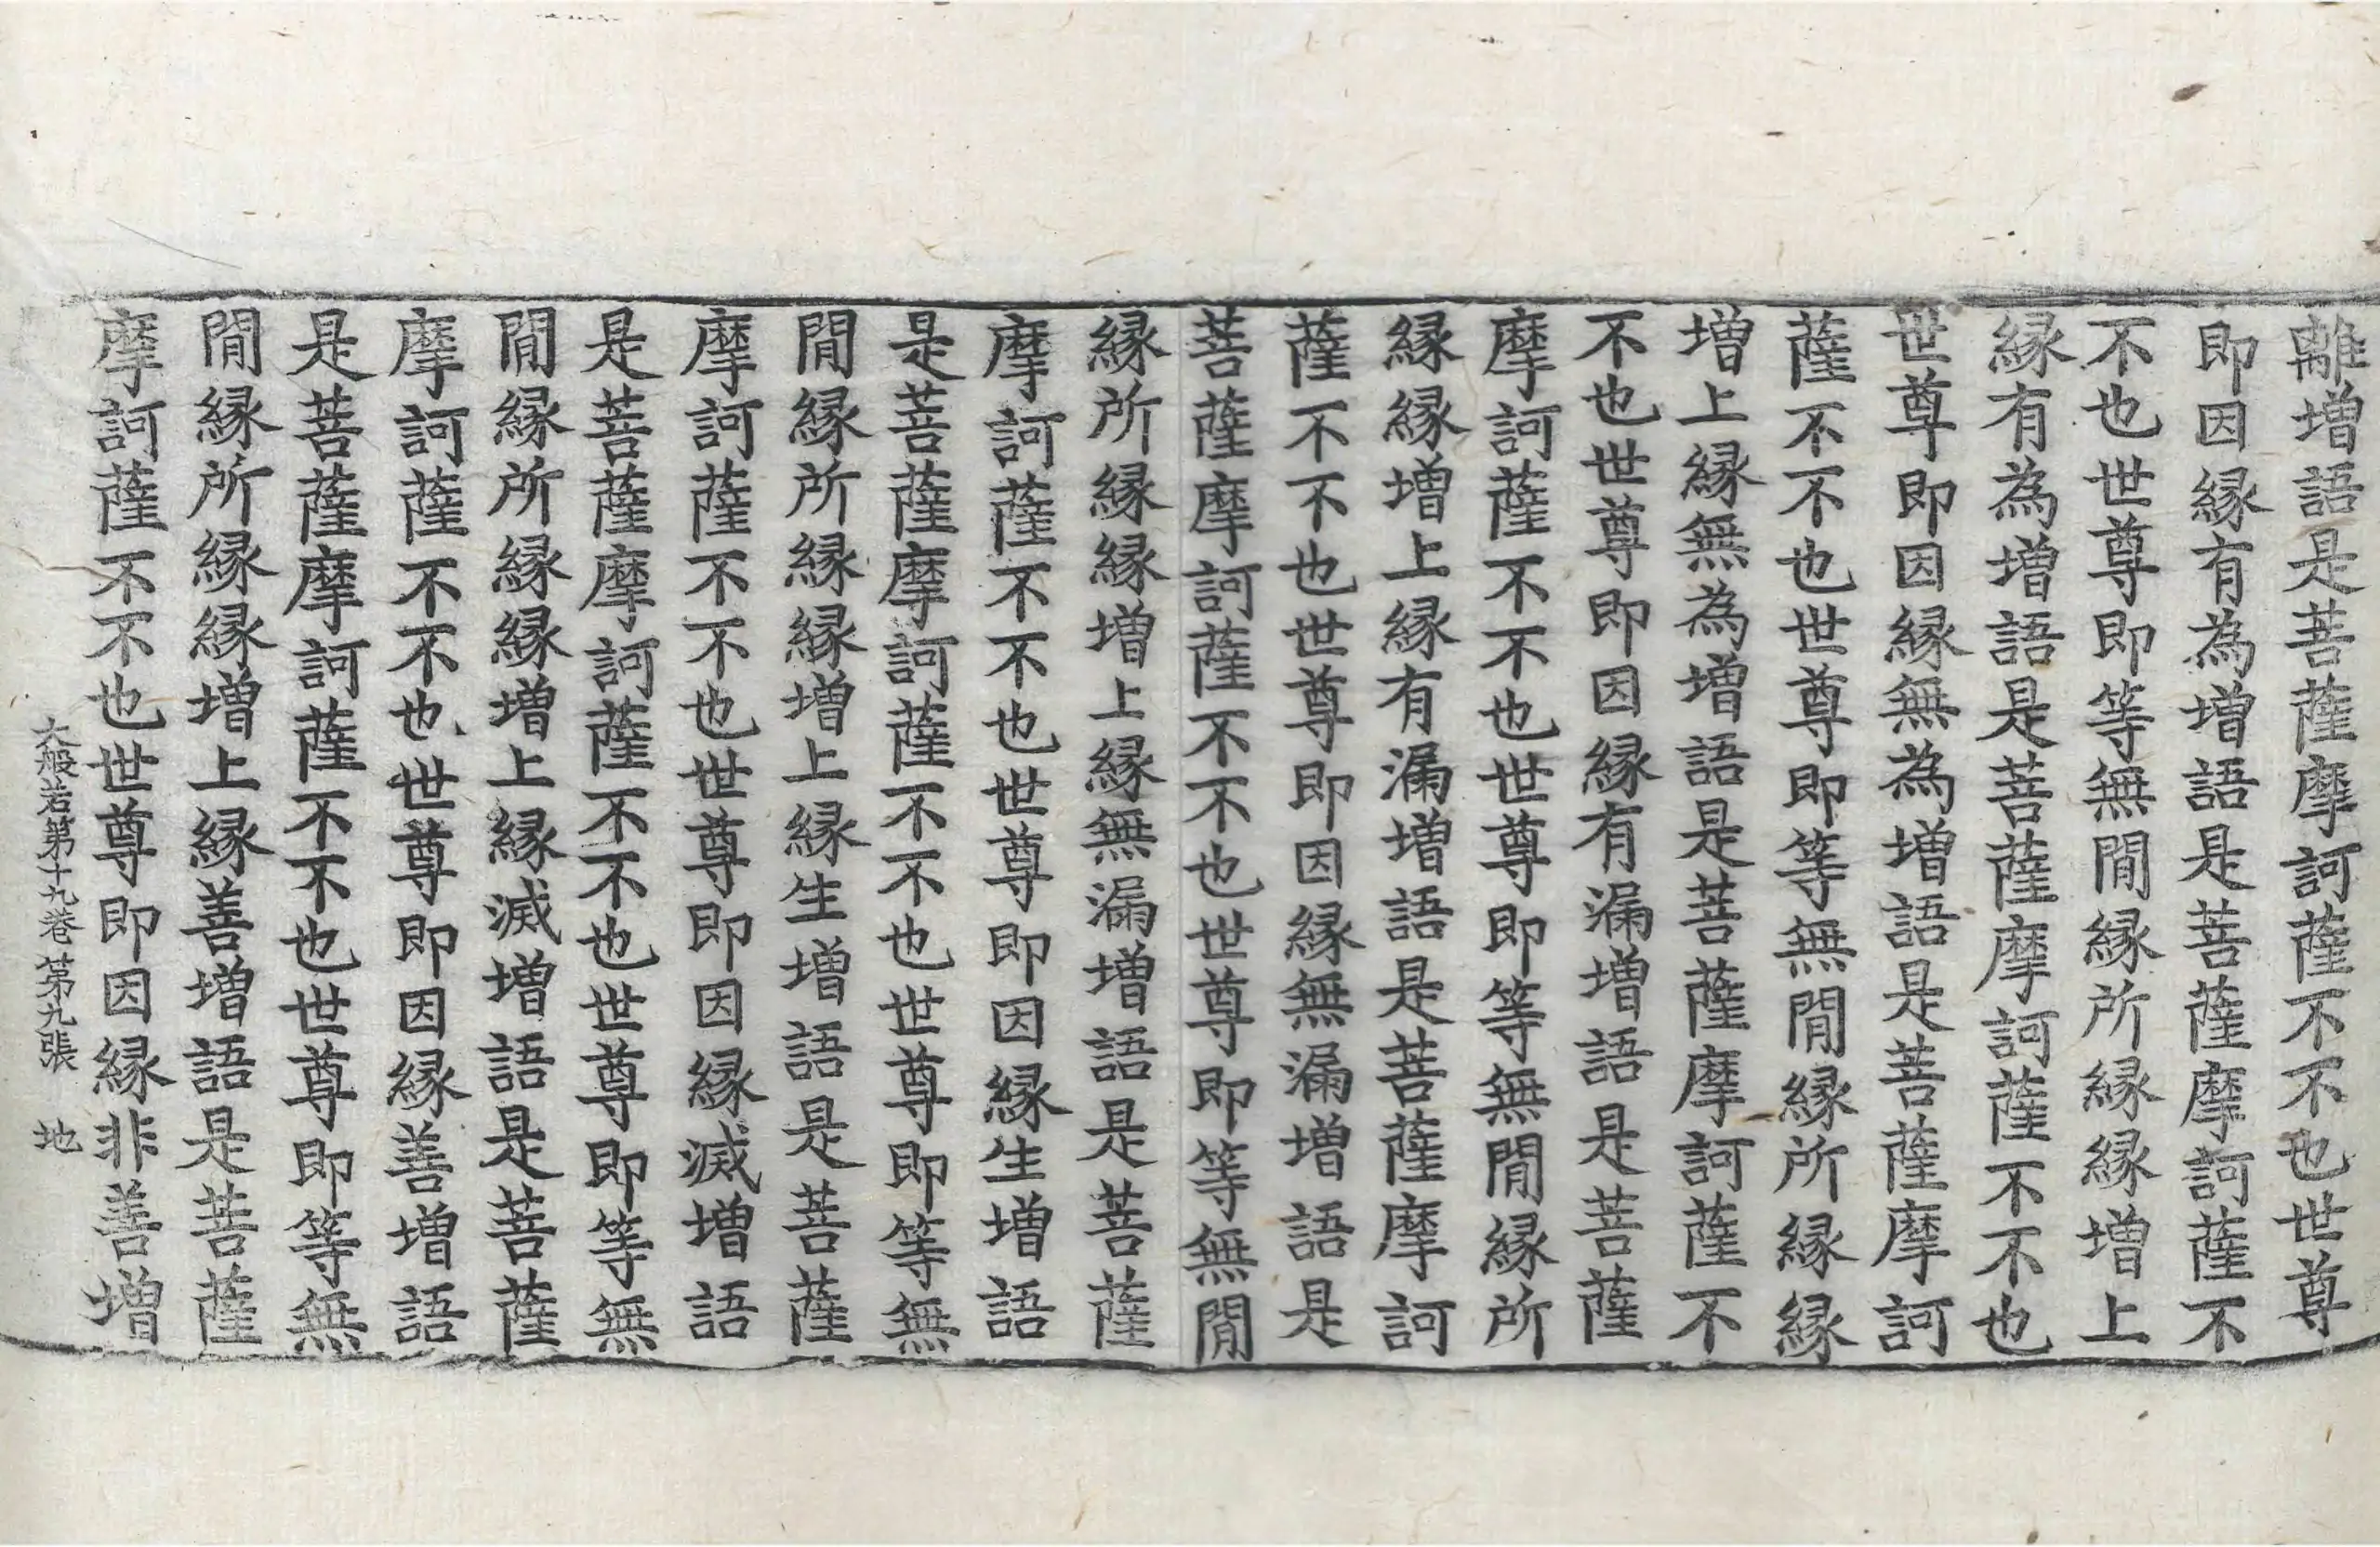 離增語是菩薩摩訶薩不不也世尊
即因縁有為增語是菩薩摩訶薩不
不也世尊即等無間縁所縁縁增上
縁有為增語是菩薩摩訶薩不不也
世尊即因縁無為增語是菩薩摩訶
薩不不也世尊即等無間縁所縁縁
增上縁無為增語是菩薩摩訶薩不
不也世尊即因縁有漏增語是菩薩
摩訶薩不不也世尊即等無間縁所
縁縁增上縁有漏增語是菩薩摩訶
薩不不也世尊即因縁無漏增語是
菩薩摩訶薩不不也世尊即等無間
縁所縁縁增上縁無漏增語是菩薩
摩訶薩不不也世尊即因縁生增語
是菩薩摩訶薩不不也世尊即等無
間縁所縁縁增上縁生增語是菩薩
摩訶薩不不也世尊即因縁滅增語
是菩薩摩訶薩不不也世尊即等無
間縁所縁縁增上縁滅增語是菩薩
摩訶薩不不也世尊即因縁善增語
是菩薩摩訶薩不不也世尊即等無
間縁所縁縁增上縁善增語是菩薩
摩訶薩不不也世尊即因縁非善增
大般若第十九卷 第九張 地